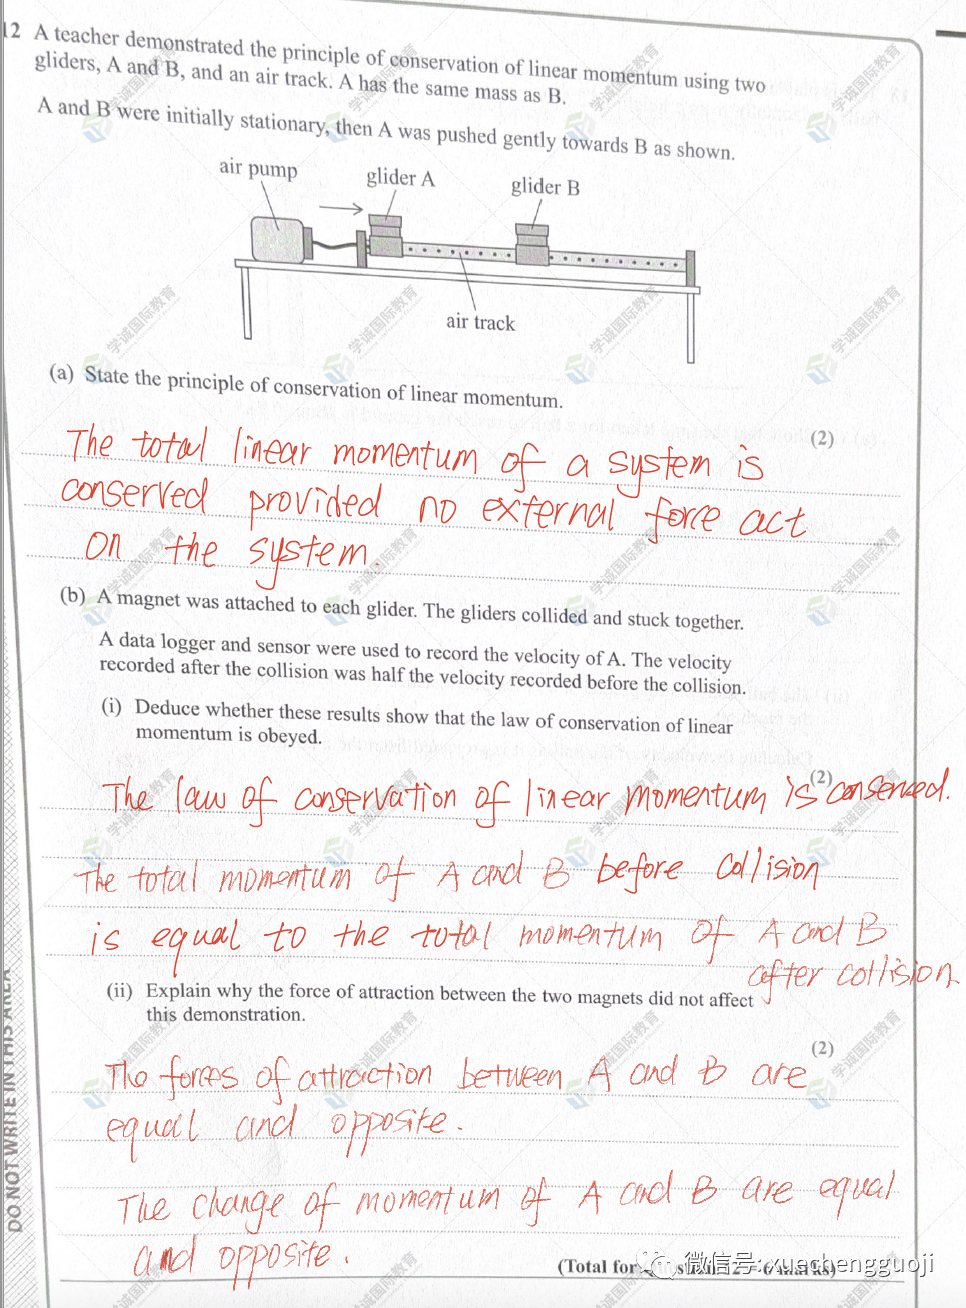 12 A teacher demonstrated the principle of conservation of linear momentum using two
gliders, A and B, and an air track. A has the same mass as B.
A and B were initially stationary, then A was pushed gently towards B as shown.
air pump
glider A
glider B
air track
(a) State the principle of conservation of linear momentum.
(2)
The total linear momentum of a system is
conserved provided no external force act
on the system.
(b) A magnet was attached to each glider. The gliders collided and stuck together.
A data logger and sensor were used to record the velocity of A. The velocity
recorded after the collision was half the velocity recorded before the collision.
(i) Deduce whether these results show that the law of conservation of linear
momentum is obeyed.
(2)
The law of conservation of linear momentum is conserved.
The total momentum of A and B before collision
is equal to the total momentum of A and B
after collision
(ii) Explain why the force of attraction between the two magnets did not affect
this demonstration.
(2)
The forces of attraction between A and B are
equal and opposite.
The change of momentum of A and B are equal
and opposite.
(Total for
微信号: xuechengguoji
DO NOT WRITE IN THIS AREA
学诚国际教育